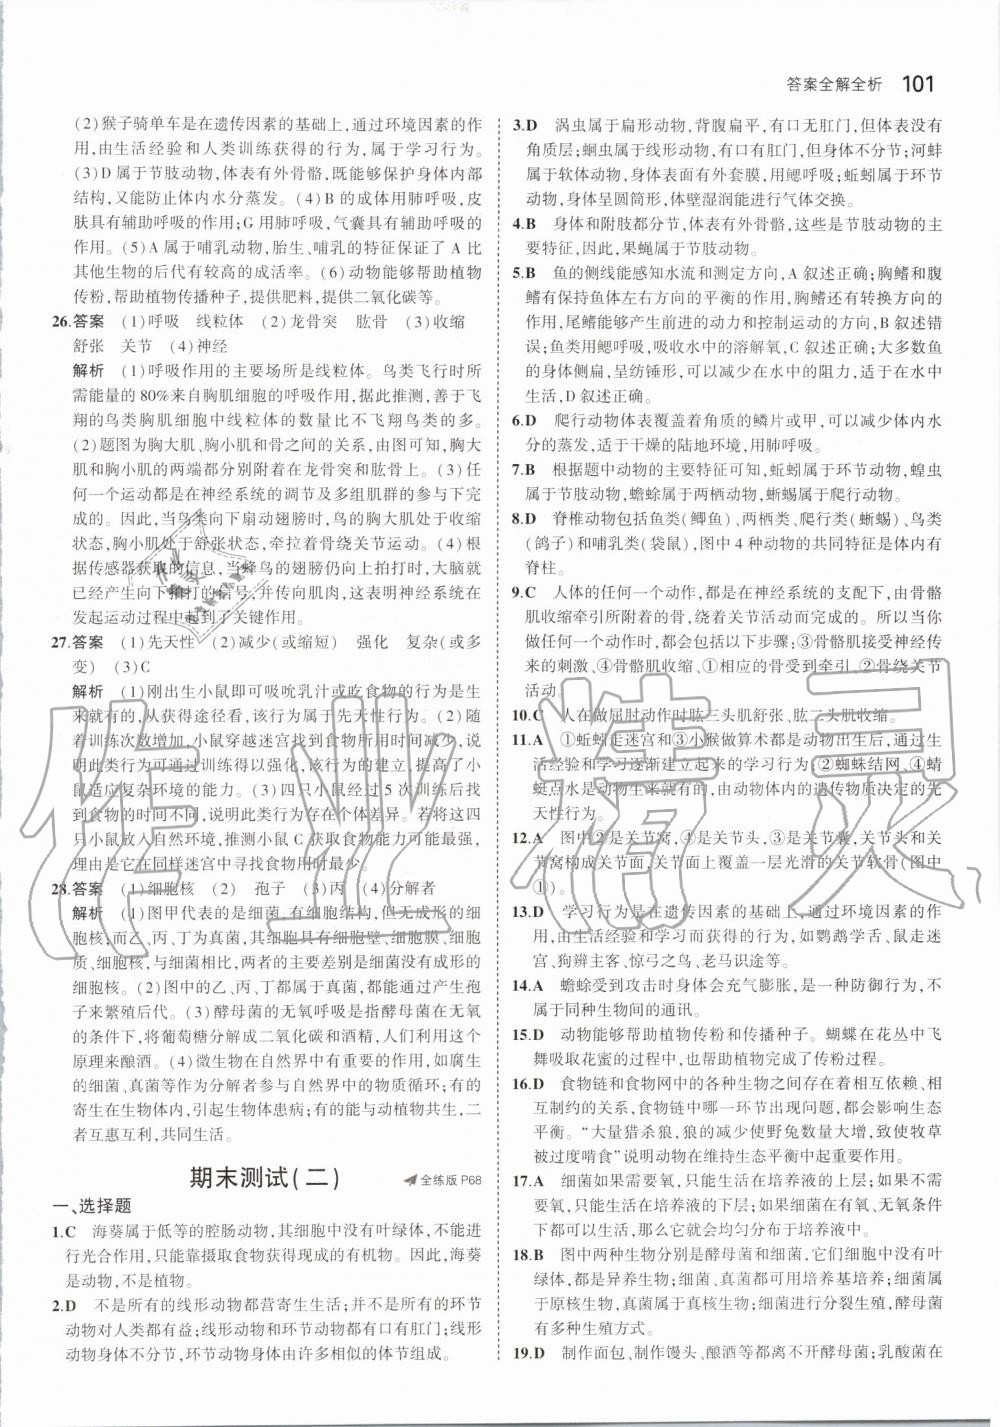 答案全解全析 101
(2)猴子骑单车是在遗传因素的基础上,通过环境因素的作
用,由生活经验和人类训练获得的行为,属于学习行为。
(3)D属于节肢动物,体表有外骨骼,既能够保护身体内部
结构,又能防止体内水分蒸发。(4)B的成体用肺呼吸,皮
肤具有辅助呼吸的作用;G用肺呼吸,气囊具有辅助呼吸的
作用。(5)A属于哺乳动物,胎生、哺乳的特征保证了A比
其他生物的后代有较高的成活率。(6)动物能够帮助植物
传粉,帮助植物传播种子,提供肥料,提供二氧化碳等。
26.答案 (1)呼吸 线粒体 (2)龙骨突 肱骨 (3)收缩
舒张 关节 (4)神经
解析 (1)呼吸作用的主要场所是线粒体。鸟类飞行时所
需能量的80%来自胸肌细胞的呼吸作用,据此推测,善于飞
翔的鸟类胸肌细胞中线粒体的数量比不飞翔鸟类的多。
(2)题图为胸大肌、胸小肌和骨之间的关系,由图可知,胸大
肌和胸小肌的两端都分别附着在龙骨突和肱骨上。(3)任
何一个运动都是在神经系统的调节及多组肌群的参与下完
成的。因此,当鸟类向下扇动翅膀时,鸟的胸大肌处于收缩
状态,胸小肌处于舒张状态,牵拉着骨绕关节运动。(4)根
据传感器获取的信息,当蜂鸟的翅膀向上拍打时,大脑就
已经产生向下拍打的信号,并传向肌肉,这表明神经系统在
发起运动过程中起到了关键作用。
27.答案 (1)先天性 (2)减少(或缩短) 强化 复杂(或多
变) (3)C
解析 (1)刚出生小鼠即可吸吮乳汁或吃食物的行为是生
来就有的,从获得途径看,该行为属于先天性行为。(2)随
着训练次数增加,小鼠穿越迷宫找到食物所用时间减少,说
明此类行为可通过训练得以强化,该行为的基础上,使小
鼠适应复杂环境的能力。(3)四只小鼠经过5次训练后找
到食物的时间不同,说明此类行为存在个体差异。若将这四
只小鼠放入自然环境,推测小鼠C获取食物能力可能最强,
理由是它在同样迷宫中寻找食物用时最少。
28.答案 (1)细胞核 (2)孢子 (3)丙 (4)分解者
解析 (1)图甲代表的是细菌,有细胞结构,但无成形的细
胞核;而乙、丙、丁为真菌,其细胞具有细胞壁、细胞膜、细胞
质、细胞核,两者相比,两者的主要区别是细菌没有成形的
细胞核。(2)图中的乙、丙、丁都属于真菌,都能通过产生孢
子来繁殖后代。(3)酵母菌的无氧呼吸是指酵母菌在无氧
的条件下,将葡萄糖分解成二氧化碳和酒精,人们利用这个
原理来酿酒。(4)微生物在自然界中有重要的作用,如腐生
的细菌、真菌等作为分解者参与自然界中的物质循环;有的
寄生在生物体内,引起生物体患病;有的与动植物共生,二
者互惠互利,共同生活。
期末测试(二) 全练版P68
一、选择题
1.C 海葵属于低等的腔肠动物,其细胞中没有叶绿体,不能进
行光合作用,只能靠摄取食物获得现成的有机物。因此,海葵
是动物,不是植物。
2.D 不是所有的线形动物都营寄生生活;并不是所有的环节
动物对人类都有益;线形动物和环节动物都有口有肛门;线形
动物身体不分节,环节动物身体由许多相似的体节组成。
3.D 涡虫属于扁形动物,背腹扁平,有口无肛门,但体表没有
角质层;蛔虫属于线形动物,有口有肛门,但身体不分节;河蚌
属于软体动物,身体表面有外套膜,用鳃呼吸;蚯蚓属于环节
动物,身体呈圆筒形,体壁湿润能进行气体交换。
4.B 身体和附肢都分节,体表有外骨骼,这些是节肢动物的主
要特征,因此,果蝇属于节肢动物。
5.B 鱼的侧线能感知水流和测定方向,A叙述正确;胸鳍和腹
鳍有保持鱼体左右方向的平衡的作用,胸鳍还有转换方向的
作用,尾鳍能够产生前进的动力和控制运动的方向,B叙述错
误;鱼类用鳃呼吸,吸收水中的溶解氧,C叙述正确;大多数鱼
的身体侧扁,呈纺锤形,可以减少在水中的阻力,适于在水中
生活,D叙述正确。
6.D 爬行动物体表覆盖着角质的鳞片或甲,可以减少体内水
分的蒸发,适于干燥的陆地环境,用肺呼吸。
7.B 根据题中动物的主要特征可知,蚯蚓属于环节动物,蝗虫
属于节肢动物,蟾蜍属于两栖动物,蜥蜴属于爬行动物。
8.D 脊椎动物包括鱼类(鲫鱼)、两栖类、爬行类(蜥蜴)、鸟类
(鸽子)和哺乳类(袋鼠),图中4种动物的共同特征是体内有
脊柱。
9.C 人体的任何一个动作,都是在神经系统的支配下,由骨骼
肌收缩牵引所附着的骨,绕着关节活动而完成的。所以当你
做任何一个动作时,都包括以下步骤:③骨骼肌接受神经传
来的刺激、④骨骼肌收缩、①相应的骨受到牵引、②骨绕关节
活动。
10.C 人在做屈肘动作时肱三头肌舒张、肱二头肌收缩。
11.A ①蚯蚓走迷宫和③小猴做算术都是动物出生后,通过生
活经验和学习逐渐建立起来的学习行为;②蜘蛛结网、④蜻
蜓点水是动物生来就有的,由动物体内的遗传物质决定的先
天性行为。
12.A 图中②是关节窝,④是关节头,③是关节囊,关节头和关
节窝构成关节面,关节面上覆盖一层光滑的关节软骨(图中
①)。
13.D 学习行为是在遗传因素的基础上,通过环境因素的作
用,由生活经验和学习而获得的行为,如鹦鹉学舌、鼠走迷
宫、狗辨主客、惊弓之鸟、老马识途等。
14.A 蟾蜍受到攻击时身体会充气膨胀,是一种防御行为,不
属于同种生物间的通讯。
15.D 动物能够帮助植物传粉和传播种子。蝴蝶在花丛中飞
舞吸取花蜜的过程中,也帮助植物完成了传粉过程。
16.D 食物链和食物网中的各种生物之间存在着相互依赖、相
互制约的关系,食物链中哪一环节出现问题,都会影响生态
平衡。“大量猎杀狼,狼的减少使野兔数量大增,致使牧草
被过度啃食”说明动物在维持生态平衡中起着重要作用。
17.A 细菌如果需要氧,只能生活在培养液的上层;如果不需
要氧,只能生活在培养液的下层;如果在有氧、无氧条件
下都可以生活,那么就会均匀分布于培养液中。
18.B 图中两种生物分别是酵母菌和细菌,它们细胞中没有叶
绿体,都是异养生物;细菌、真菌都可用培养基培养;细菌属
于原核生物,真菌属于真核生物;细菌进行分裂生殖,酵母菌
有多种生殖方式。
19.D 制作面包、制作馒头、酿酒等都离不开酵母菌;乳酸菌在
作业精灵